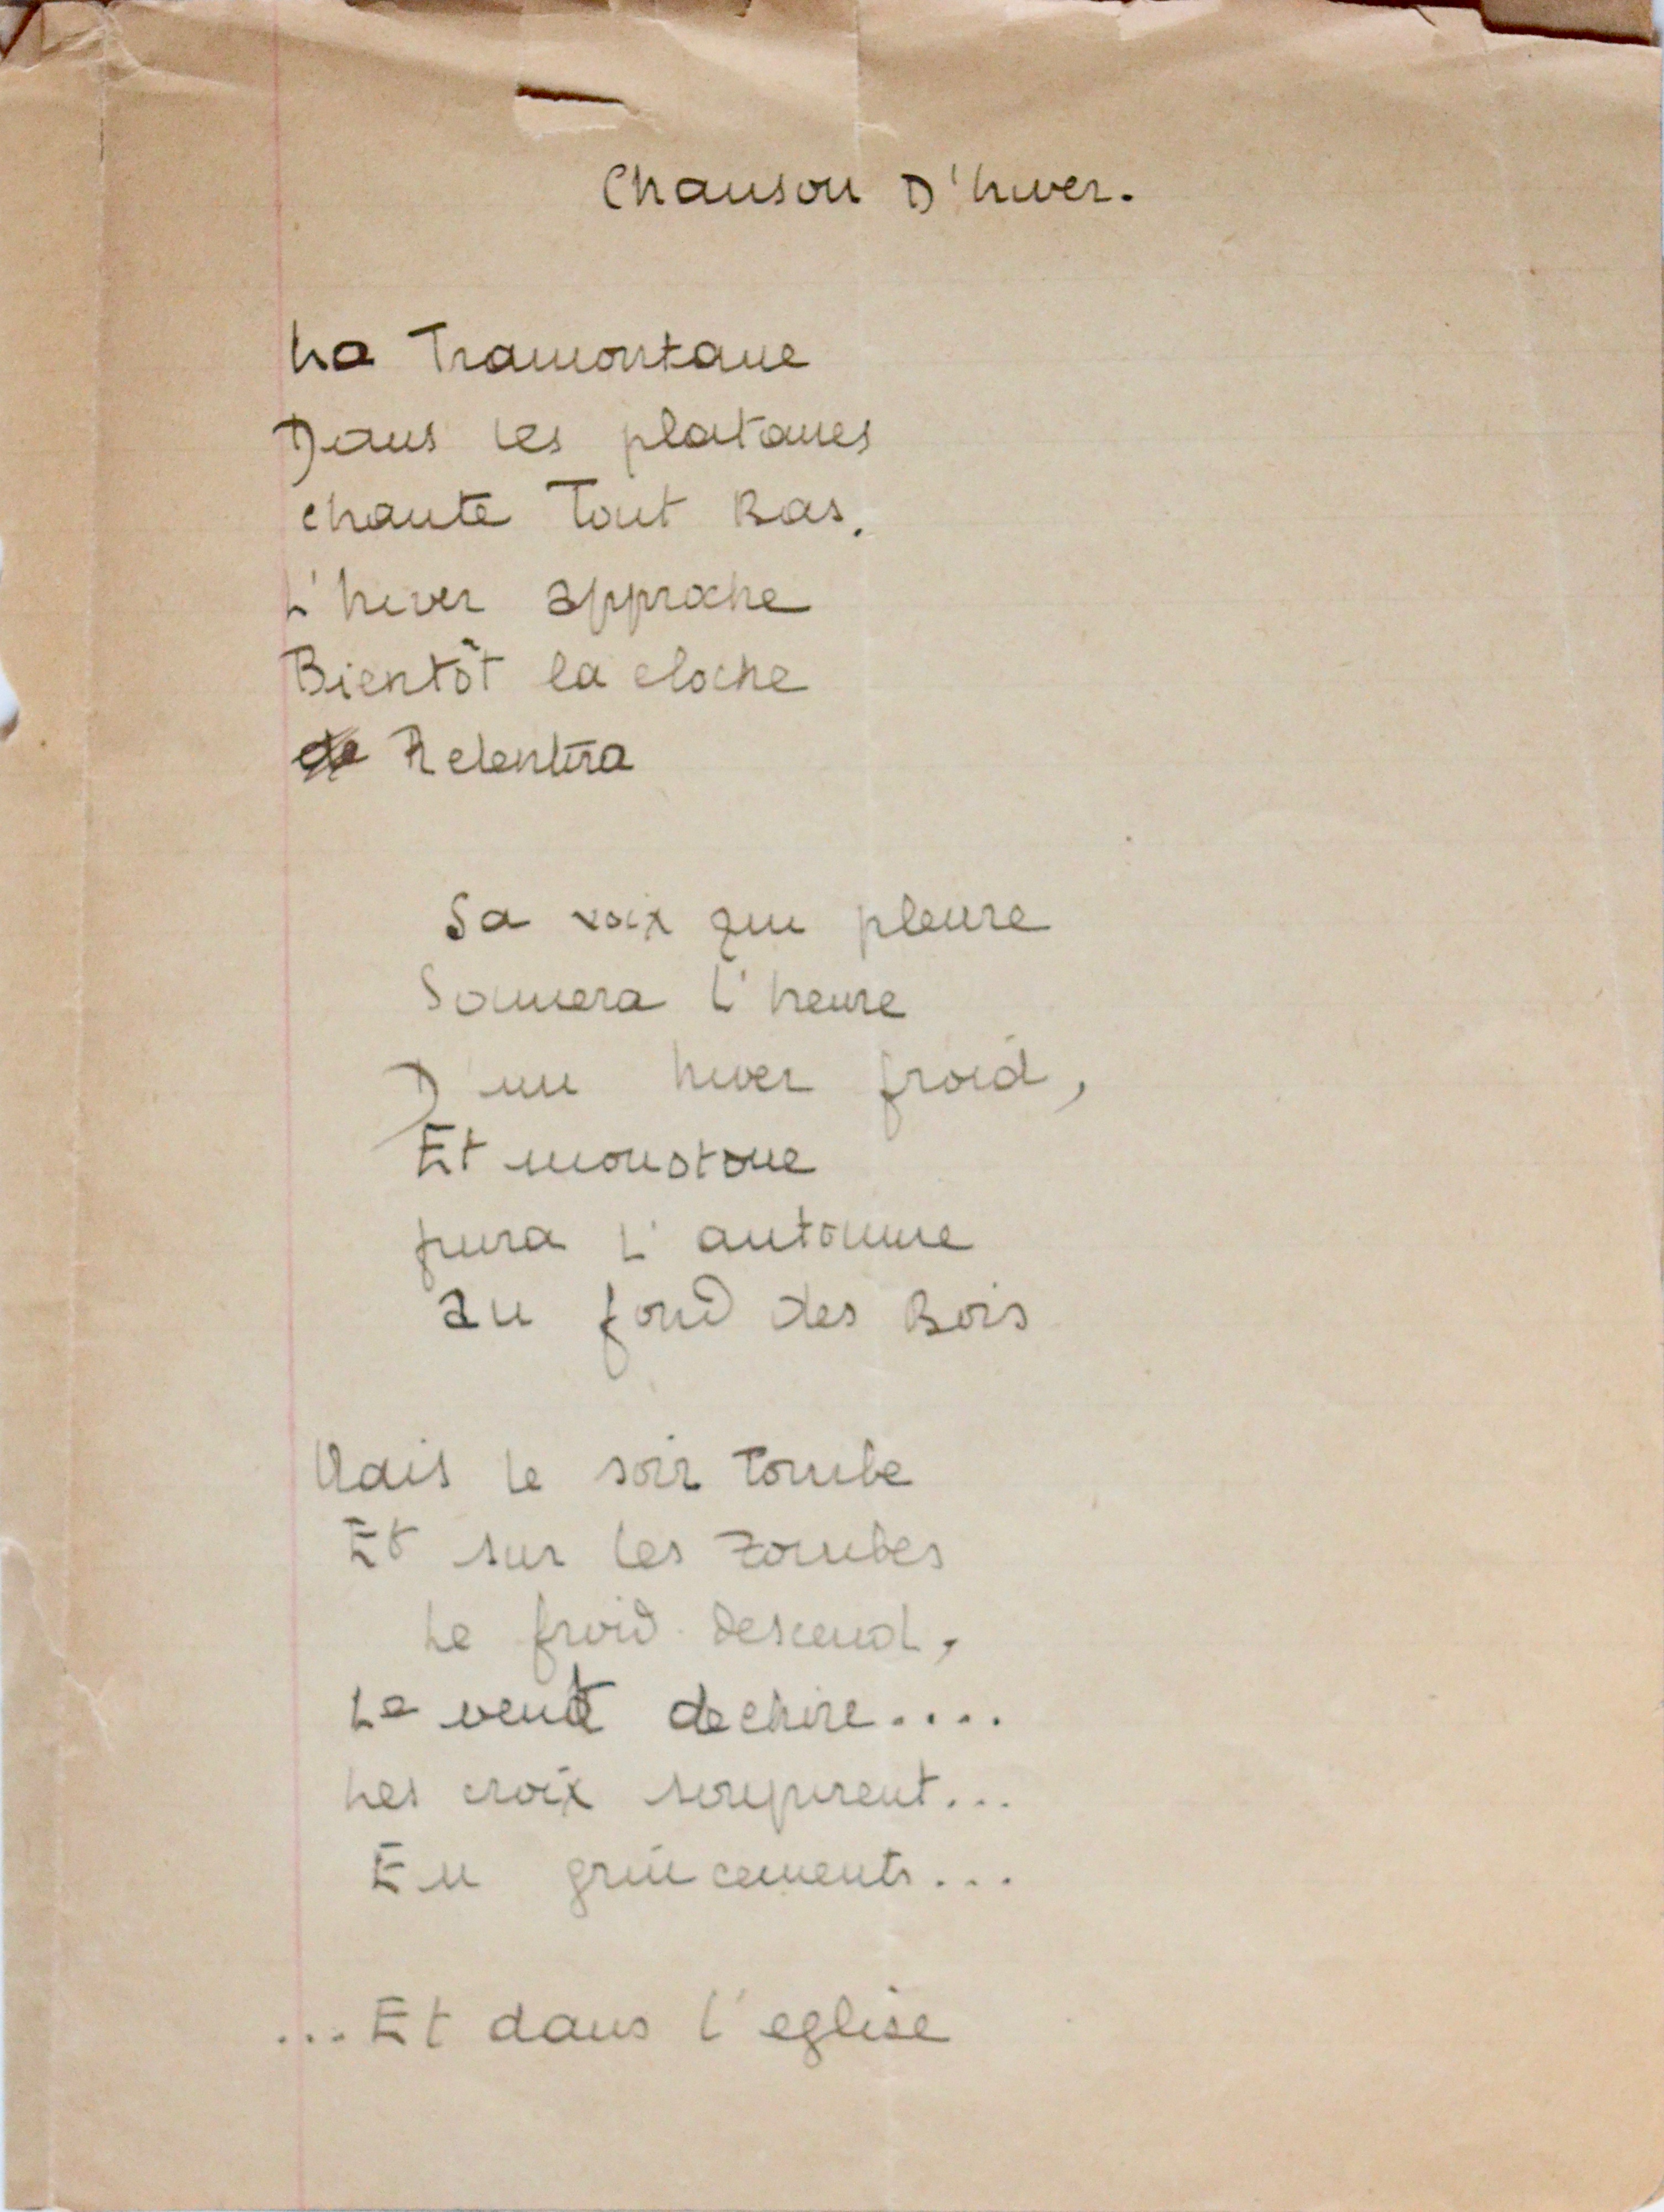 Chanson D'hiver.
La Tramontane
Dans les platanes
chante Tout Bas.
L'hiver approche
Bientôt la cloche
Retentira
Sa voix qui pleure
Sonnera l'heure
D'un hiver froid,
Et monotone
fuira L'automne
au fond des Bois
Mais le soir Tombe
Et sur les Tombes
Le froid descend,
Le vent dechire....
Les croix soupirent...
En grincements...
...Et dans l'eglise